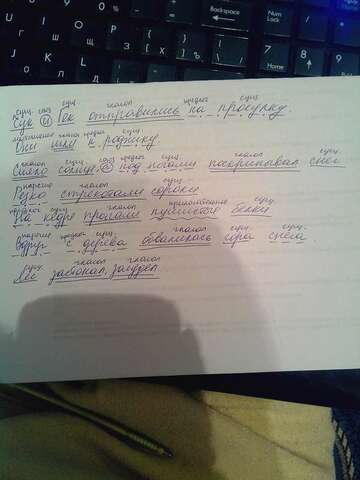 Num Lock
Backspace
Home
7
8
Enter
сущ. союз сущ глагол предлог сущ.
Сук и Гек отправились на прогулку.
местоимение глагол предлог сущ.
Они шли к роднику.
глагол сущ. союз предлог сущ. глагол сущ.
Сияло солнце, а под ногами поскрипывал снег.
наречие глагол сущ.
Резко стрекотали сороки.
предлог сущ. глагол прилагательное сущ.
На кедре прыгали пушистые белки.
наречие предлог сущ. глагол сущ. сущ.
Вдруг с дерева обвалилась гора снега.
сущ. глагол глагол
Лес застонал, загудел